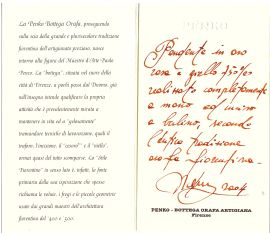 La Penko Bottega Orafa, proseguendo
sulla scia della grande e pluriscolare tradizione
fiorentina dell'artigianato prezioso, nasce
intorno alla figura del Maestro d'Arte Paolo
Penko. La "bottega", situata nel cuore della
città di Firenze, a pochi passi dal Duomo, già
nell'insegna intende qualificare la propria
attività che è prevalentemente mirata a
mantenere in vita ed a "gelosamente"
tramandare tecniche di lavorazione, quali il
traforo, l'incisione, il "cesoro" e lo "stile",
ormai quasi del tutto scomparse. Lo "stile
Fiorentino" in senso lato è, infatti, la fonte
primaria della sua ispirazione che spesso
richiama le volute, i fregi e le piccole geometrie
usate dai grandi maestri dell'architettura
fiorentina del '400 e '500.
PENKO
Pendente in oro
rosa e giallo
realizzato completamente
a mano ed inciso
a bulino, secondo
l'antica tradizione
orafa fiorentina.
PENKO - BOTTEGA ORAFA ARTIGIANA
Firenze